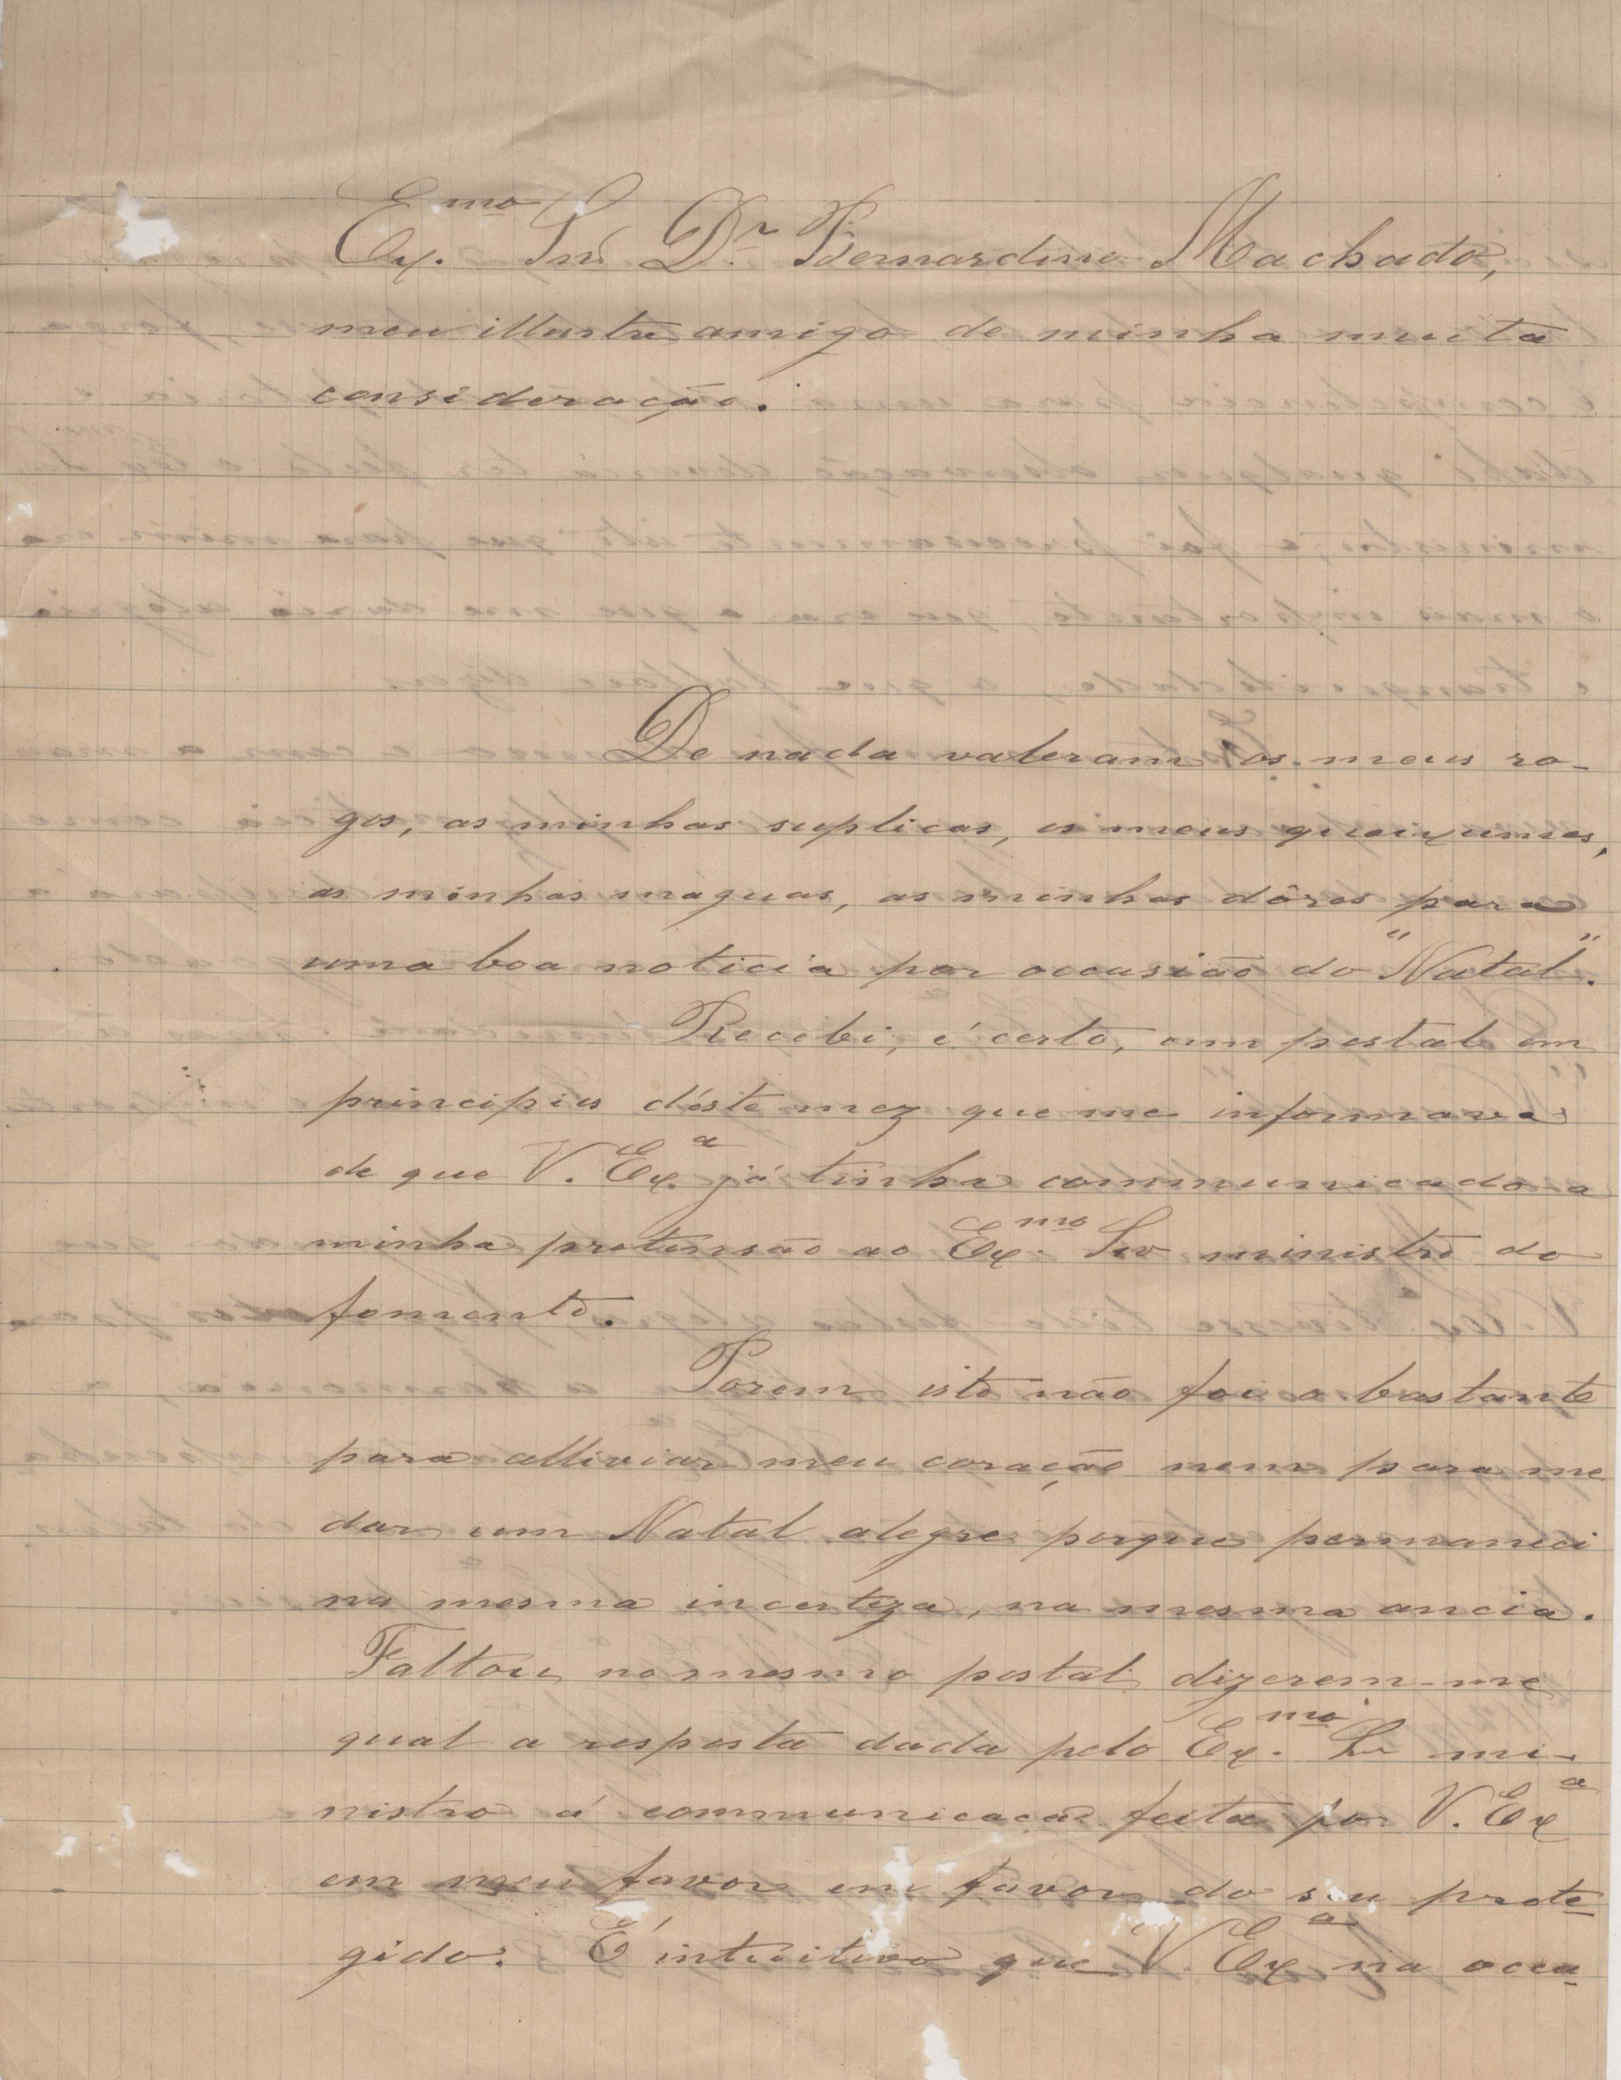 Ex.mo Snr. D.r Bernardino Machado,
meu illustre amigo de minha muita
consideração.
De nada valeram os meus ro-
gos, as minhas suplicas, os meus queixumes,
as minhas maguas, as minhas dôres para
uma boa noticia por occasião do "Natal".
Recebi, é certo, um postal em
principios d'éste mez que me informava
de que V. Ex.a já tinha communicado a
minha pretensão ao Ex.mo Snr ministro do
fomento.
Porem isto não foi o bastante
para alliviar meu coração nem para me
dar um Natal alegre porque permaneci
na mesma incerteza, na mesma ancia.
Faltou no mesmo postal dizerem-me
qual a resposta dada pelo Ex.mo Sr mi-
nistro á communicação feita por V. Ex.a
em meu favor em favor do seu prote-
gido. É intuitivo que V. Ex.a na occa-